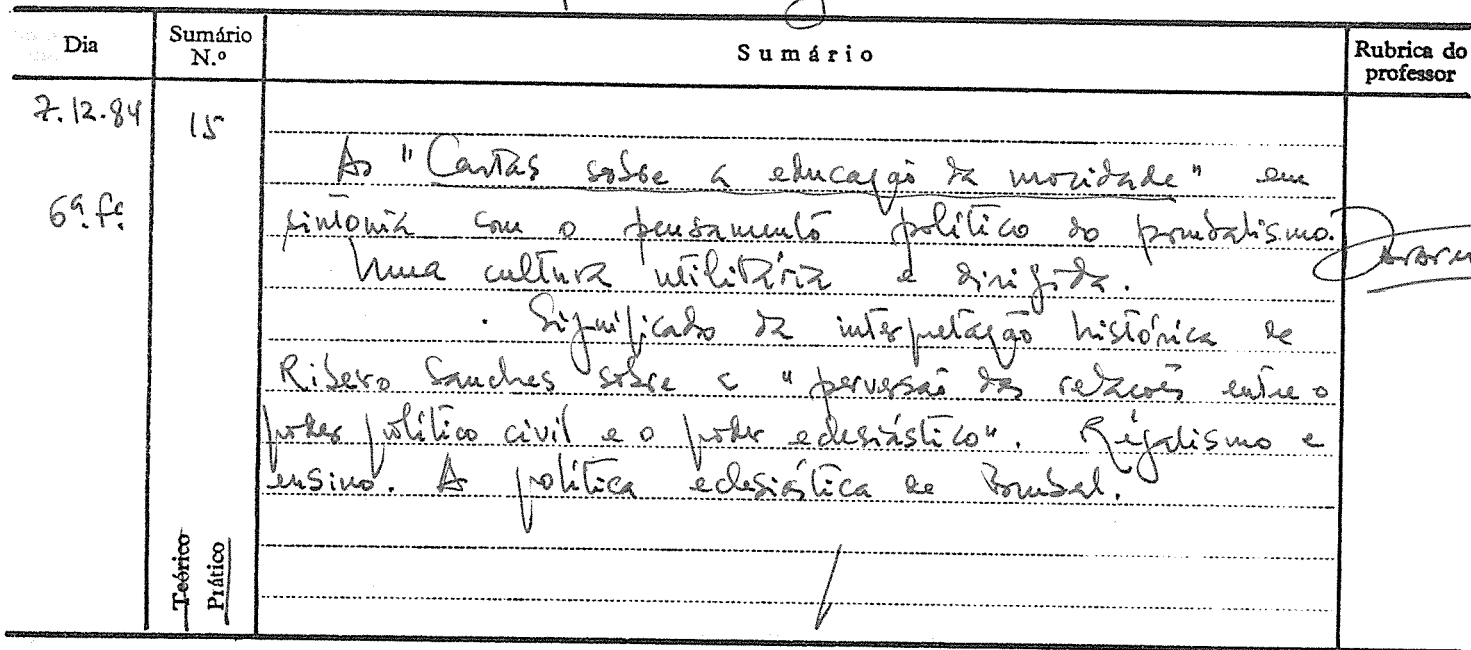 Dia
Sumário N.º
Sumário
Rubrica do professor
7.12.84
15
6ª fª
As "Cartas sobre a educação da mocidade" em
sintonia com o pensamento político do pombalismo.
Uma cultura utilitária e dirigida.
. Significado da interpretação histórica de
Ribeiro Sanches sobre a "perversão das relações entre o
poder político civil e o poder eclesiástico". Regalismo e
ensino. A política eclesiástica de Pombal.
Teórico
Prático